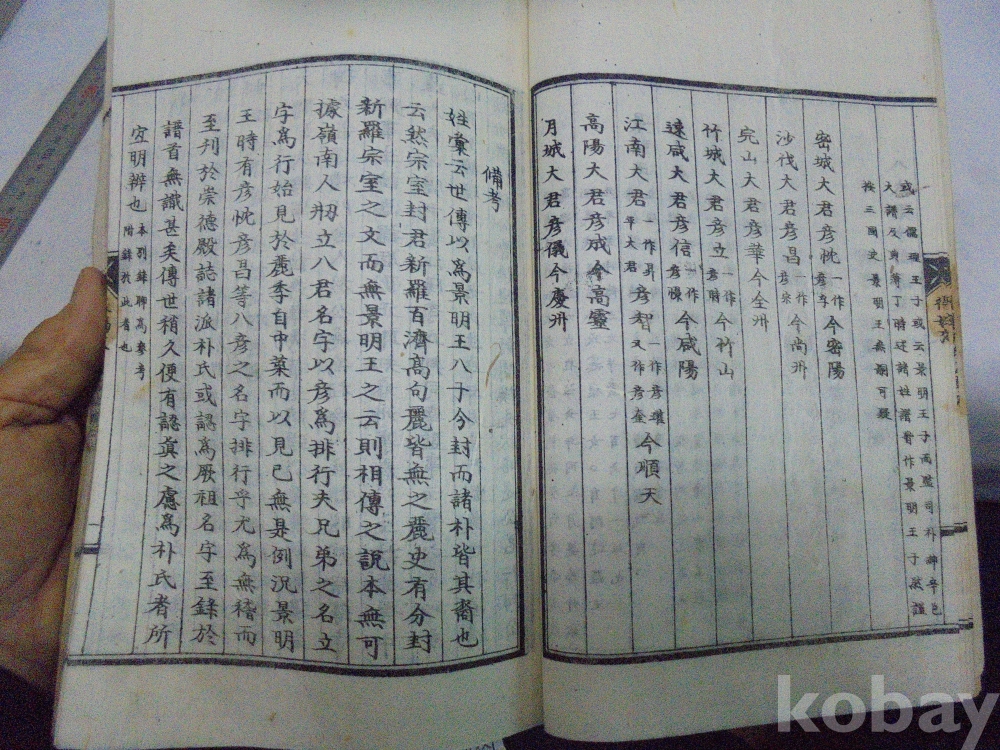 或云儒理王子或云景明王子而監司朴
大譜反
按三國史景明王無嗣可疑
密城大君彦忱一作彦車今密陽
沙伐大君彦昌一作彦宗今尙州
完山大君彦華今全州
竹城大君彦立一作彦時今竹山
速咸大君彦信一作彦愼今咸陽
江南大君一作昇平大君彦智一作彦瓘又作彦奎今順天
高陽大君彦成今高靈
月城大君彦儀今慶州
備考
姓彙云世傳以爲景明王八子今封而諸朴皆其裔也
云然宗室封君新羅百濟高句麗皆無之麗史有分封
新羅宗室之文而無景明王之云則相傳之說本無可
據嶺南人刱立八君名字以彦爲排行夫兄弟之名立
字爲行始見於麗季自中葉而以見已無是例況景明
王時有彦忱彦昌等八彦之名字排行乎尤爲無稽而
至刊於崇德殿誌諸派朴氏或認爲厥祖名字至錄於
譜首無識甚矣傳世稍久便有認眞之慮爲朴氏者所
宜明辨也本別錄聯高參考附錄於此者也
kobay